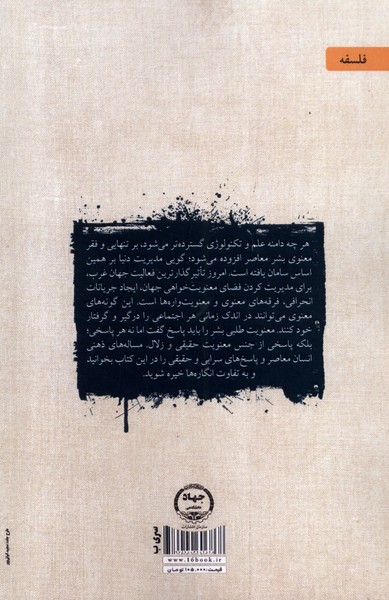 فلسفه
هر چه دامنه علم و تکنولوژی گسترده‌تر می‌شود، بر تنهایی و فقر
معنوی بشر معاصر افزوده می‌شود؛ گویی مدیریت دنیا بر همین
اساس سامان یافته است. امروز تأثیرگذارترین فعالیت جهان غرب،
برای مدیریت کردن فضای معنویت‌خواهی جهان، ایجاد جریانات
انحرافی، فرقه‌های معنوی و معنویت‌واره‌ها است. این گونه‌های
معنوی می‌توانند در اندک زمانی هر اجتماعی را درگیر و گرفتار
خود کنند. معنویت طلبی بشر را باید پاسخ گفت اما نه هر پاسخی؛
بلکه پاسخی از جنس معنویت حقیقی و زلال. مساله‌های ذهنی
انسان معاصر و پاسخ‌های سرابی و حقیقی را در این کتاب بخوانید
و به تفاوت انگاره‌ها خیره شوید.
جهاد
دانشگاهی
سازمان انتشارات
سری ب
www.16book.ir
قیمت: ۱۰۵,۰۰۰ تومان